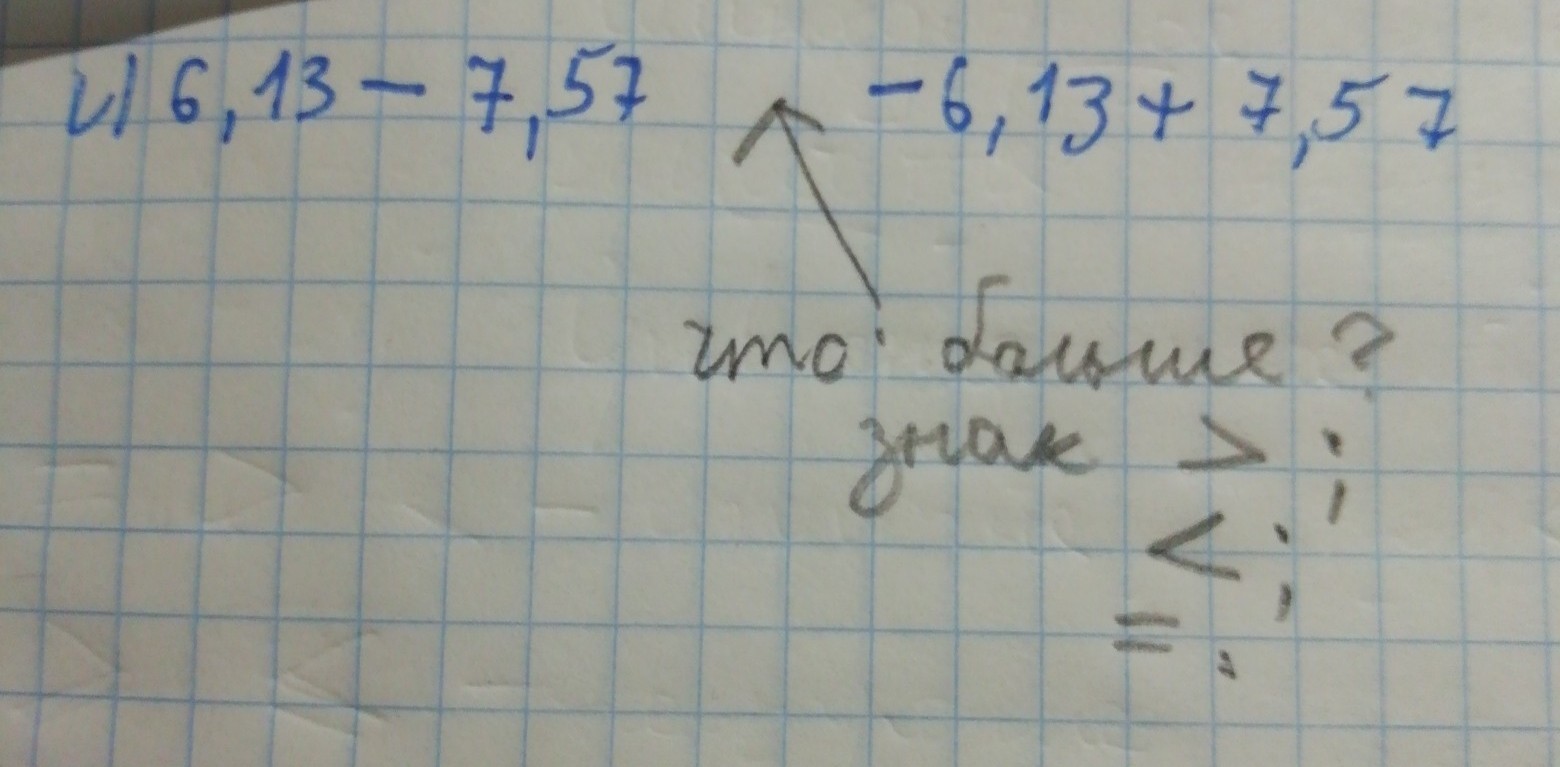 и) 6,13 - 7,57 -6,13 + 7,57
что больше?
знак > ;
< ;
= .